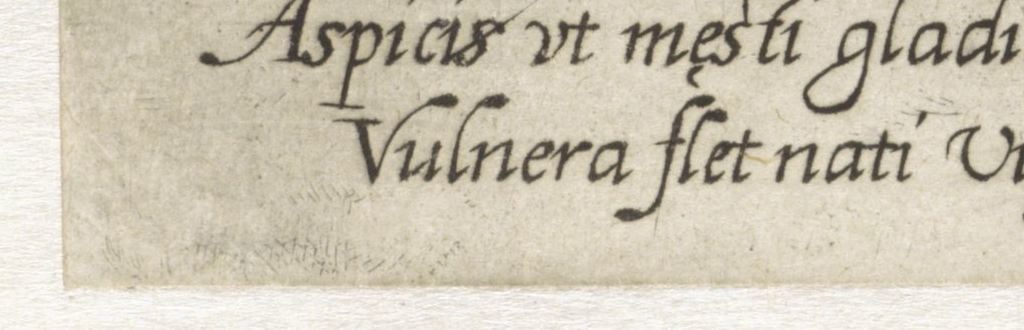 Aspicis vt męsti gladi
Vulnera flet nati